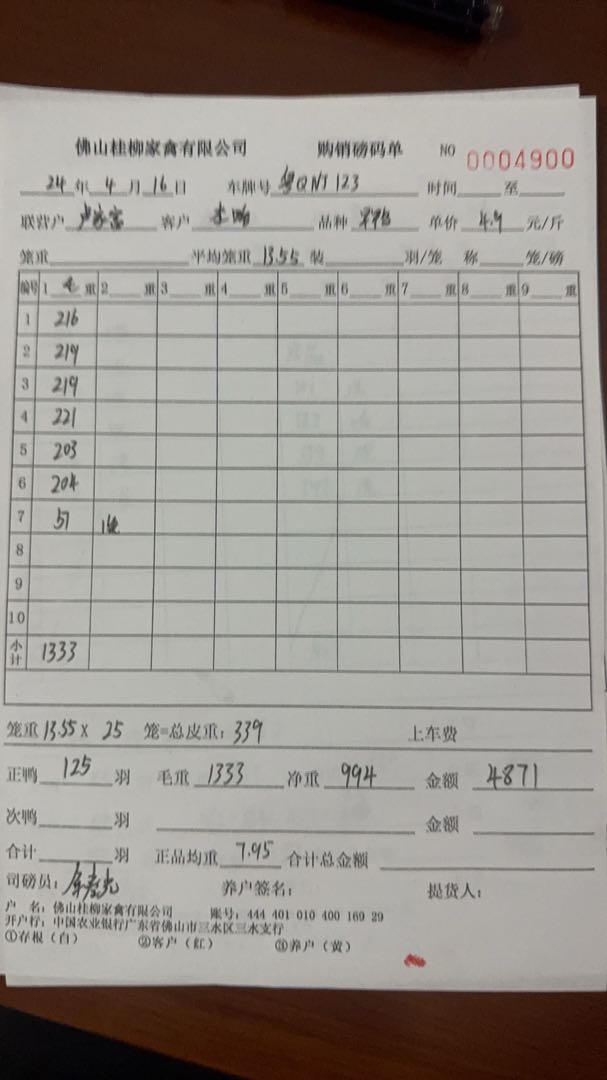 佛山桂柳家禽有限公司 购销磅码单 NO 0004900
24 年 4 月 16 日 车牌号 粤QNJ123 时间 至
联营户 客户 李 品种 单价 4.9 元/斤
笼重 平均笼重 13.55 装 羽/笼 称 笼/磅
编号 1 4 重 2 重 3 重 4 重 5 重 6 重 7 重 8 重 9 重
1 216
2 219
3 219
4 221
5 203
6 204
7 51
8
9
10
小计 1333
笼重 13.55 X 25 笼=总皮重: 339 上车费
正鸭 125 羽 毛重 1333 净重 994 金额 4871
次鸭 羽 金额
合计 羽 正品均重 7.95 合计总金额
司磅员: 养户签名: 提货人:
户 名: 佛山桂柳家禽有限公司 账号: 444 401 010 400 169 29
开户行: 中国农业银行广东省佛山市三水区三水支行
①存根（白） ②客户（红） ③养户（黄）